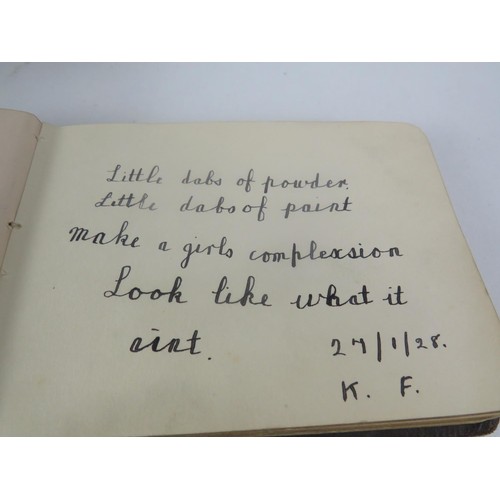 Little dabs of powder.
Little dabs of paint
make a girls complexsion
Look like what it
aint.
27/1/28.
K. F.